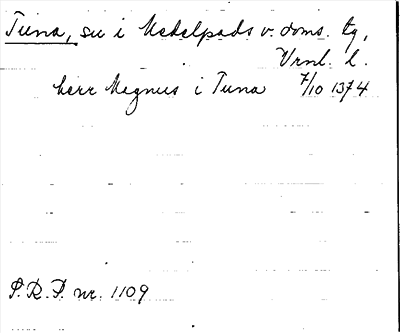 Tuna, sn i Medelpads v. doms. tg,
Vrnl. l.
herr Magnus i Tuna 7/10 1374
S.R.P. nr. 1109